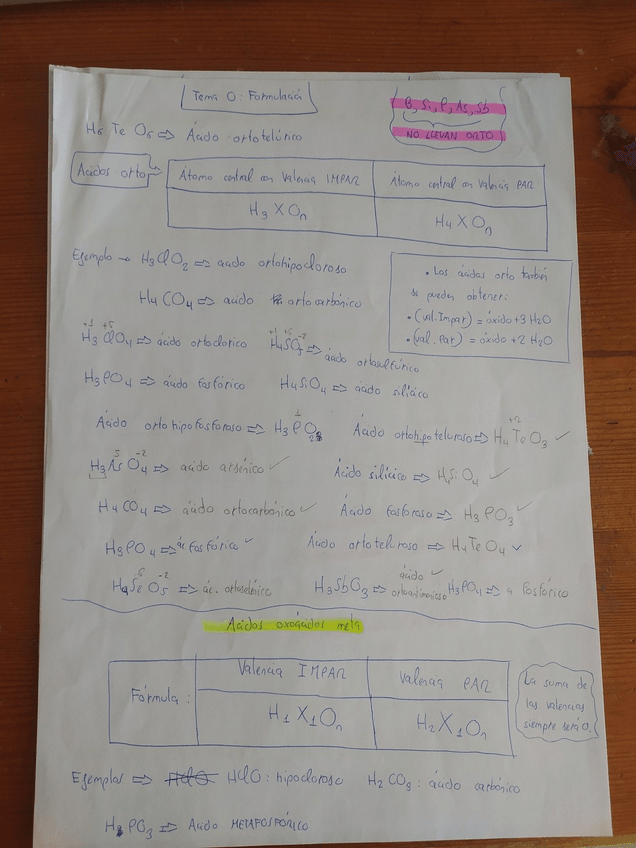 Tema 0: Formulación
B, Si, P, As, Sb
NO LLEVAN ORTO
H6 Te O6 ⇒ Ácido ortotelúrico
Ácidos orto
Átomo central con Valencia IMPAR
Átomo central con Valencia PAR
H3 X On
H4 X On
Ejemplo → H3ClO2 ⇒ ácido ortohipocloroso
H4CO4 ⇒ ácido ortocarbónico
• Los ácidos orto también
se pueden obtener:
• (val. Impar) = óxido + 3 H2O
• (val. Par) = óxido + 2 H2O
+1 +5
H3 ClO4 ⇒ ácido ortoclórico
+1 +6 -2
H4SO5 ⇒ ácido ortosulfúrico
H3PO4 ⇒ ácido fosfórico H4SiO4 ⇒ ácido silícico
Ácido ortohipofosforoso ⇒ H3PO2 Ácido ortohipoteluroso ⇒ H4TeO3 ✓
1 +2
5 -2
H3AsO4 ⇒ ácido arsénico ✓ Ácido silícico ⇒ H4SiO4 ✓
H4CO4 ⇒ ácido ortocarbónico ✓ Ácido fosforoso ⇒ H3PO3 ✓
H3PO4 ⇒ ác fosfórico ✓ Ácido ortoteluroso ⇒ H4TeO4 ✓
6 -2
H4SeO5 ⇒ ác. ortoselénico H3SbO3 ⇒ ácido ✓ ortoantimonioso H3PO4 ⇒ a fosfórico
Ácidos oxoácidos meta
Fórmula:
Valencia IMPAR
Valencia PAR
H1 X1 On
H2 X1 On
La suma de
las valencias
siempre será 0.
Ejemplos ⇒ HClO HClO: hipocloroso H2CO3: ácido carbónico
HPO3 ⇒ Ácido METAFOSFÓRICO